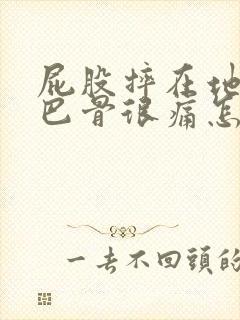 屁股摔在地
巴骨很痛怎
一去不回頭的